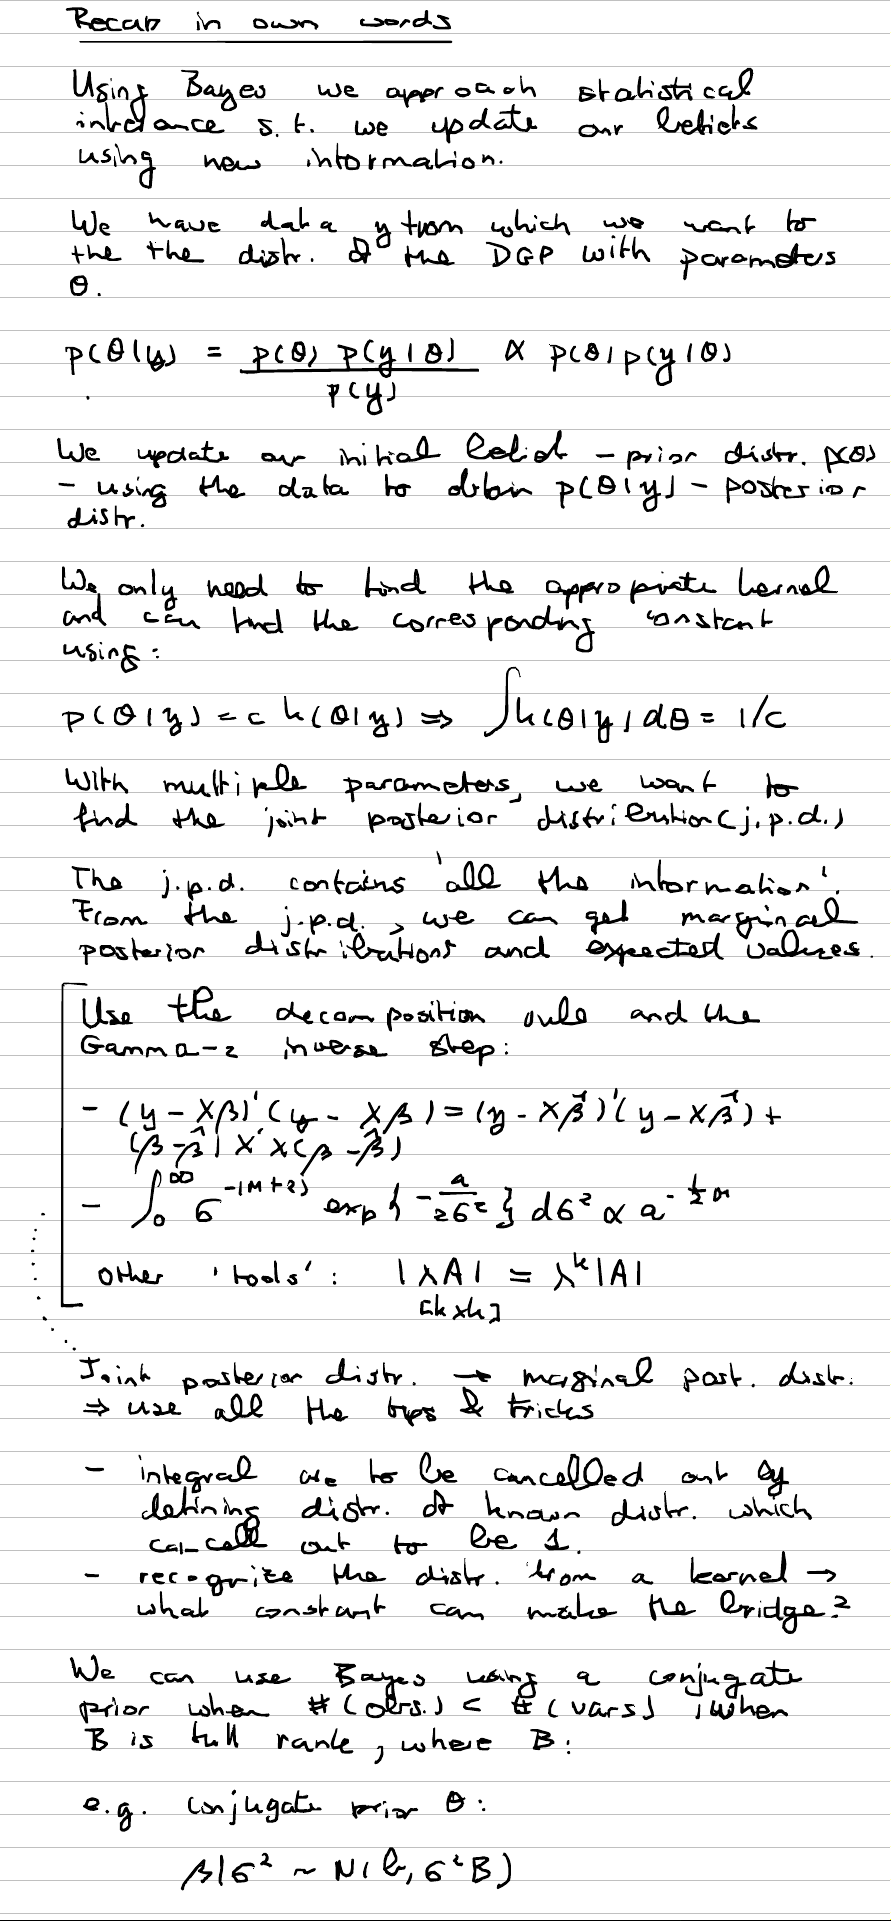 Recap in own words
Using Bayes we approach statistical
inference s.t. we update our beliefs
using new information.
We have data y from which we want to
the the distr. of the DGP with parameters
θ.
p(θ|y) = p(θ) p(y|θ) / p(y) ∝ p(θ) p(y|θ)
We update our initial belief - prior distr. p(θ)
- using the data to obtain p(θ|y) - posterior
distr.
We only need to find the appropiate kernel
and can find the corresponding constant
using:
p(θ|y) = c k(θ|y) ⇒ ∫k(θ|y) dθ = 1/c
With multiple parameters, we want to
find the joint posterior distribution (j.p.d.)
The j.p.d. contains 'all the information'.
From the j.p.d., we can get marginal
posterior distributions and expected values.
Use the decomposition rule and the
Gamma-2 inverse step:
- (y - Xβ)'(y - Xβ) = (y - Xβ̂)'(y - Xβ̂) +
(β - β̂) X'X(β - β̂)
- ∫₀^∞ σ^-(m+2) exp{-a/2σ²} dσ² ∝ a^-½m
other 'tools': |λA| = λ^k|A|
[k×k]
Joint posterior distr. → marginal post. distr.
⇒ use all the tips & tricks
- integral are to be cancelled out by
defining distr. of known distr. which
out to be 1.
- recognize the distr. from a kernel →
what constant can make the bridge?
We can use Bayes using a conjugate
prior when #(obs.) < #(vars) , when
B is full rank, where B:
e.g. conjugate prior θ:
β|σ² ~ N(b, σ²B)